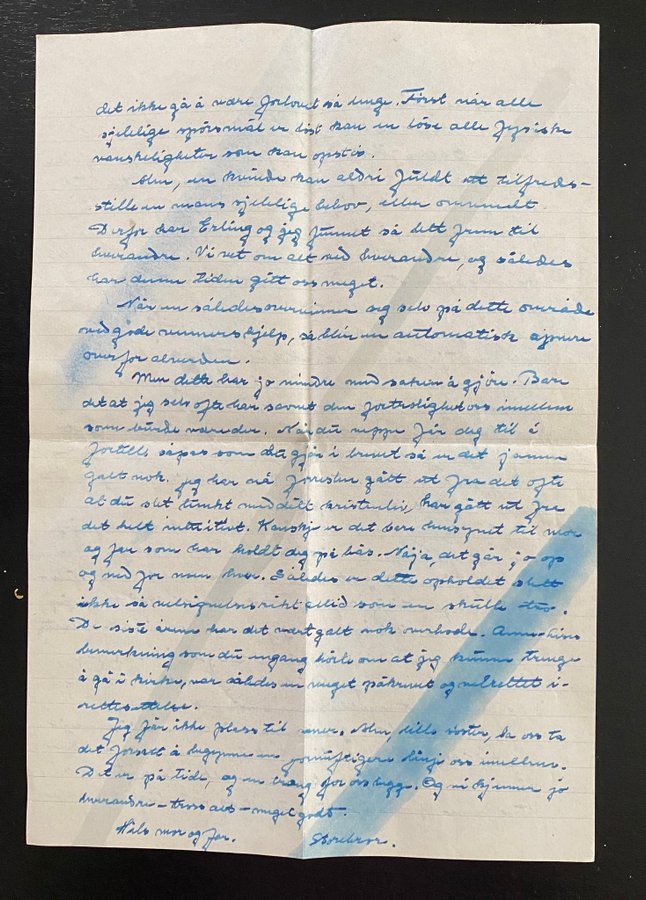 det ikke gå å være forlovet så lenge. Först når alle
sjelelige spörsmål er löst kan en löse alle fysiske
vanskeligheter som kan opstå.
Men, en kvinde kan aldri fuldt ut tilfreds-
stille en mans sjelelige behov, eller omvendt
Derfor har Erling og jeg funnet så lett frem til
hverandre. Vi vet om alt ved hverandre, og således
har denne tiden gitt oss meget.
Når en således overvinner sig selv på dette område
ved gode venners hjelp, så blir en automatisk åpnere
overfor alverden.
Men dette har jo mindre med saken å gjöre. Bare
det at jeg selv ofte har savnet den fortrolighet oss imellem
som burde være der. Når du neppe får deg til å
fortelle såpas som du gjör i brevet så er det jammen
galt nok. Jeg har nå forresten gått ut fra det ofte
at du slet tungt med ditt kristenliv, har gått ut fra
det helt intuitivt. Kanskje er det bare hensynet til mor
og far som har holdt deg på bås. Nåja, det går jo op
og ned for noen hver. Således er dette opholdet slett
ikke så velsignelsesrikt alltid som en skulle tro.
De siste årene har det vært galt nok overhode.
bemerkning som du engang kom om at jeg kunne trenge
å gå i kirke, var således en meget påkrevet og velrettet i-
rettesettelse.
Jeg får ikke plass til mer. Men, lille söster, la oss ta
det forsett å begynne en fornuftigere linje oss imellem.
Det er på tide, og en trang for oss begge. Og vi kjenner jo
hverandre – tross alt – meget godt.
Hils mor og far. Storebror.